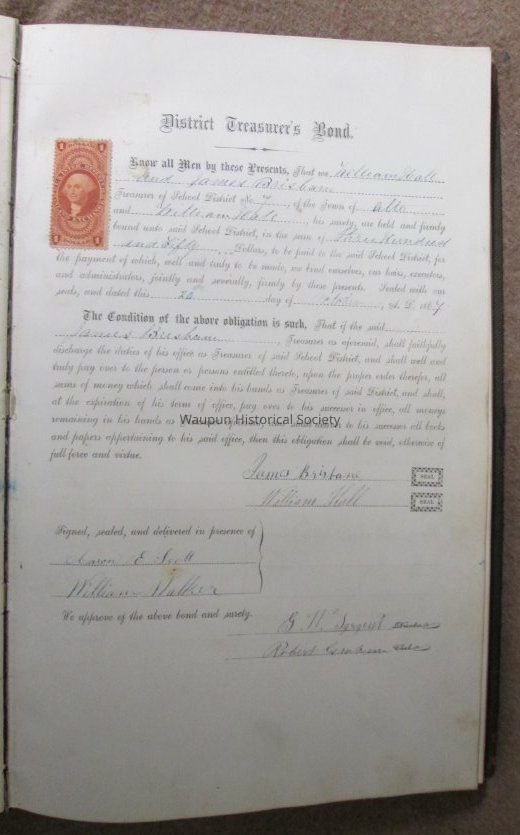 District Treasurer's Bond.
Know all Men by these Presents, That we William Hall
and James Brisbane
Treasurer of School District No. 7, of the Town of Alto
and William Hall, his surety, are held and firmly
bound unto said School District, in the sum of Three Hundred
and Fifty Dollars, to be paid to the said School District, for
the payment of which, well and truly to be made, we bind ourselves, our heirs, executors,
and administrators, jointly and severally, firmly by these presents. Sealed with our
seals, and dated this 28 day of October, A. D. 1867
The Condition of the above obligation is such, That if the said
James Brisbane, Treasurer as aforesaid, shall faithfully
discharge the duties of his office as Treasurer of said School District, and shall well and
truly pay over to the person or persons entitled thereto, upon the proper order therefor, all
sums of money which shall come into his hands as Treasurer of said District, and shall,
at the expiration of his term of office, pay over to his successor in office, all moneys
remaining in his hands as Treasurer aforesaid, and shall deliver to his successor all books
and papers appertaining to his said office, then this obligation shall be void, otherwise of
full force and virtue.
Waupun Historical Society
James Brisbane SEAL
William Hall SEAL
Signed, sealed, and delivered in presence of
Aaron E. Scott
William Walker
We approve of the above bond and surety.
G. W. Sargent
Robert Graham Clerk